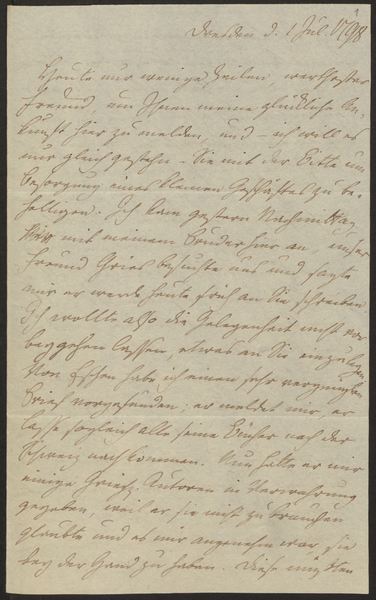 1
Dresden d. 1 Jul. 1798
Heute nur wenige Zeilen, werthester
Freund, um Ihnen meine glückliche An-
kunft hier zu melden, und – ich will es
nur gleich gestehn – Sie mit der Bitte um
Besorgung eines kleinen Geschäftes zu be-
helligen. Ich kam gestern Nachmittag
mit meinem Bruder hier an, unser
Freund Gries besuchte uns und sagte
mir er werde heute früh an Sie schreiben.
Ich wollte also die Gelegenheit nicht vor-
beygehen lassen, etwas an Sie einzulegen.
Von Eschen habe ich einen sehr vergnügten
Brief vorgefunden; er meldet mir, er
lasse sogleich alle seine Bücher nach der
Schweiz nachkommen. Nun hatte er mir
einige Griech. Autoren in Verwahrung
gegeben, weil er sie nicht zu brauchen
glaubte und es mir angenehm war, sie
bey der Hand zu haben. Diese müßten